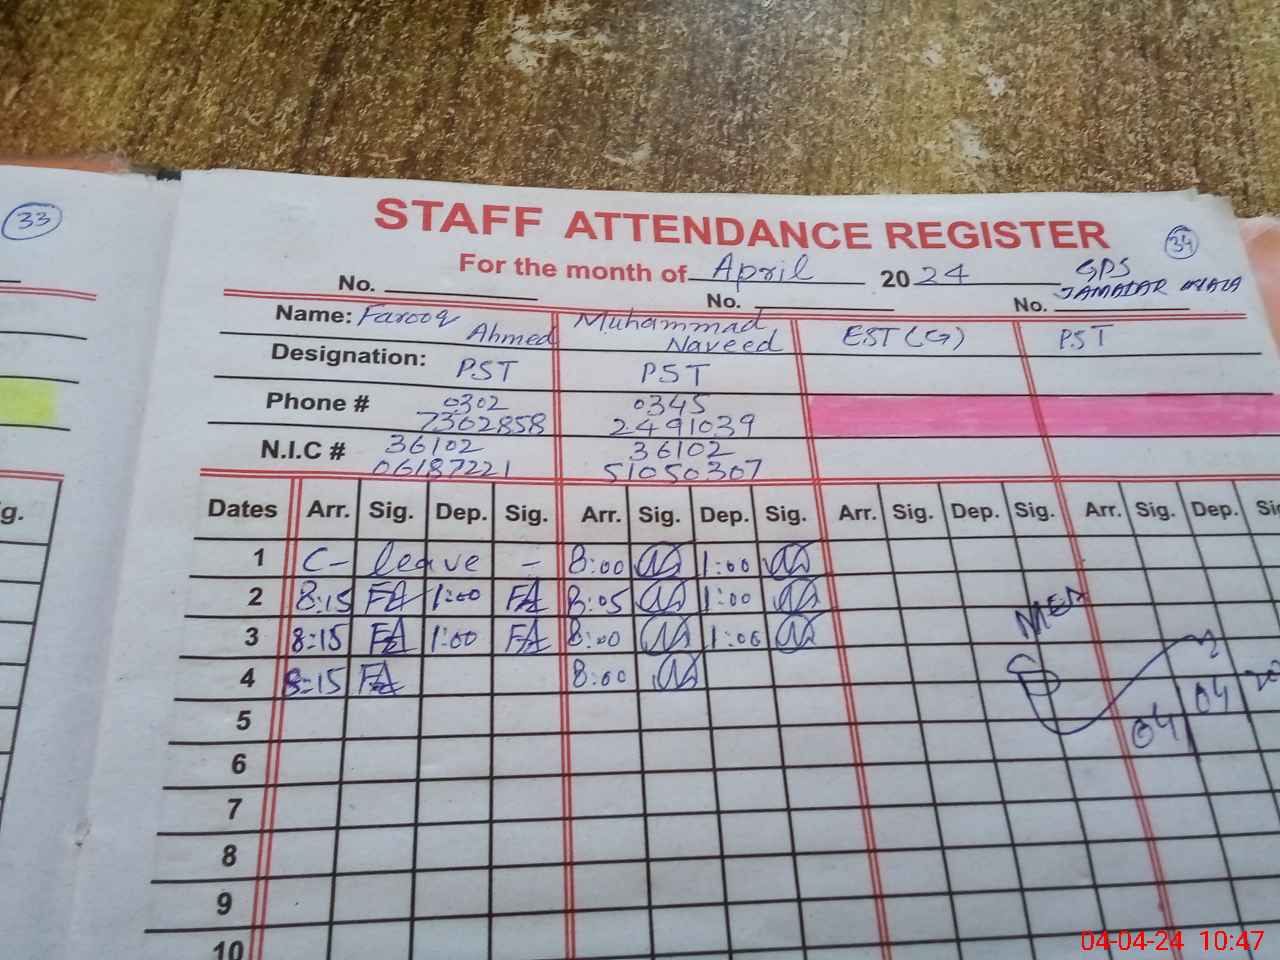 33
STAFF ATTENDANCE REGISTER
34
For the month of April 2024
GPS
JAMADAR
No. No. No.
Name: Farooq Ahmed Muhammad Naveed EST (G) PST
Designation: PST PST
Phone # 0302 7362858 0345 2491039
N.I.C # 36102 06187221 36102 51050307
g.
Dates Arr. Sig. Dep. Sig. Arr. Sig. Dep. Sig. Arr. Sig. Dep. Sig. Arr. Sig. Dep. Si
1 C- leave - 8:00 1:00
2 8:15 FA 1:00 FA 8:05 1:00
3 8:15 FA 1:00 FA 8:00 1:00
4 8:15 FA 8:00
MEA
04 04 20
5
6
7
8
9
10
04-04-24 10:47